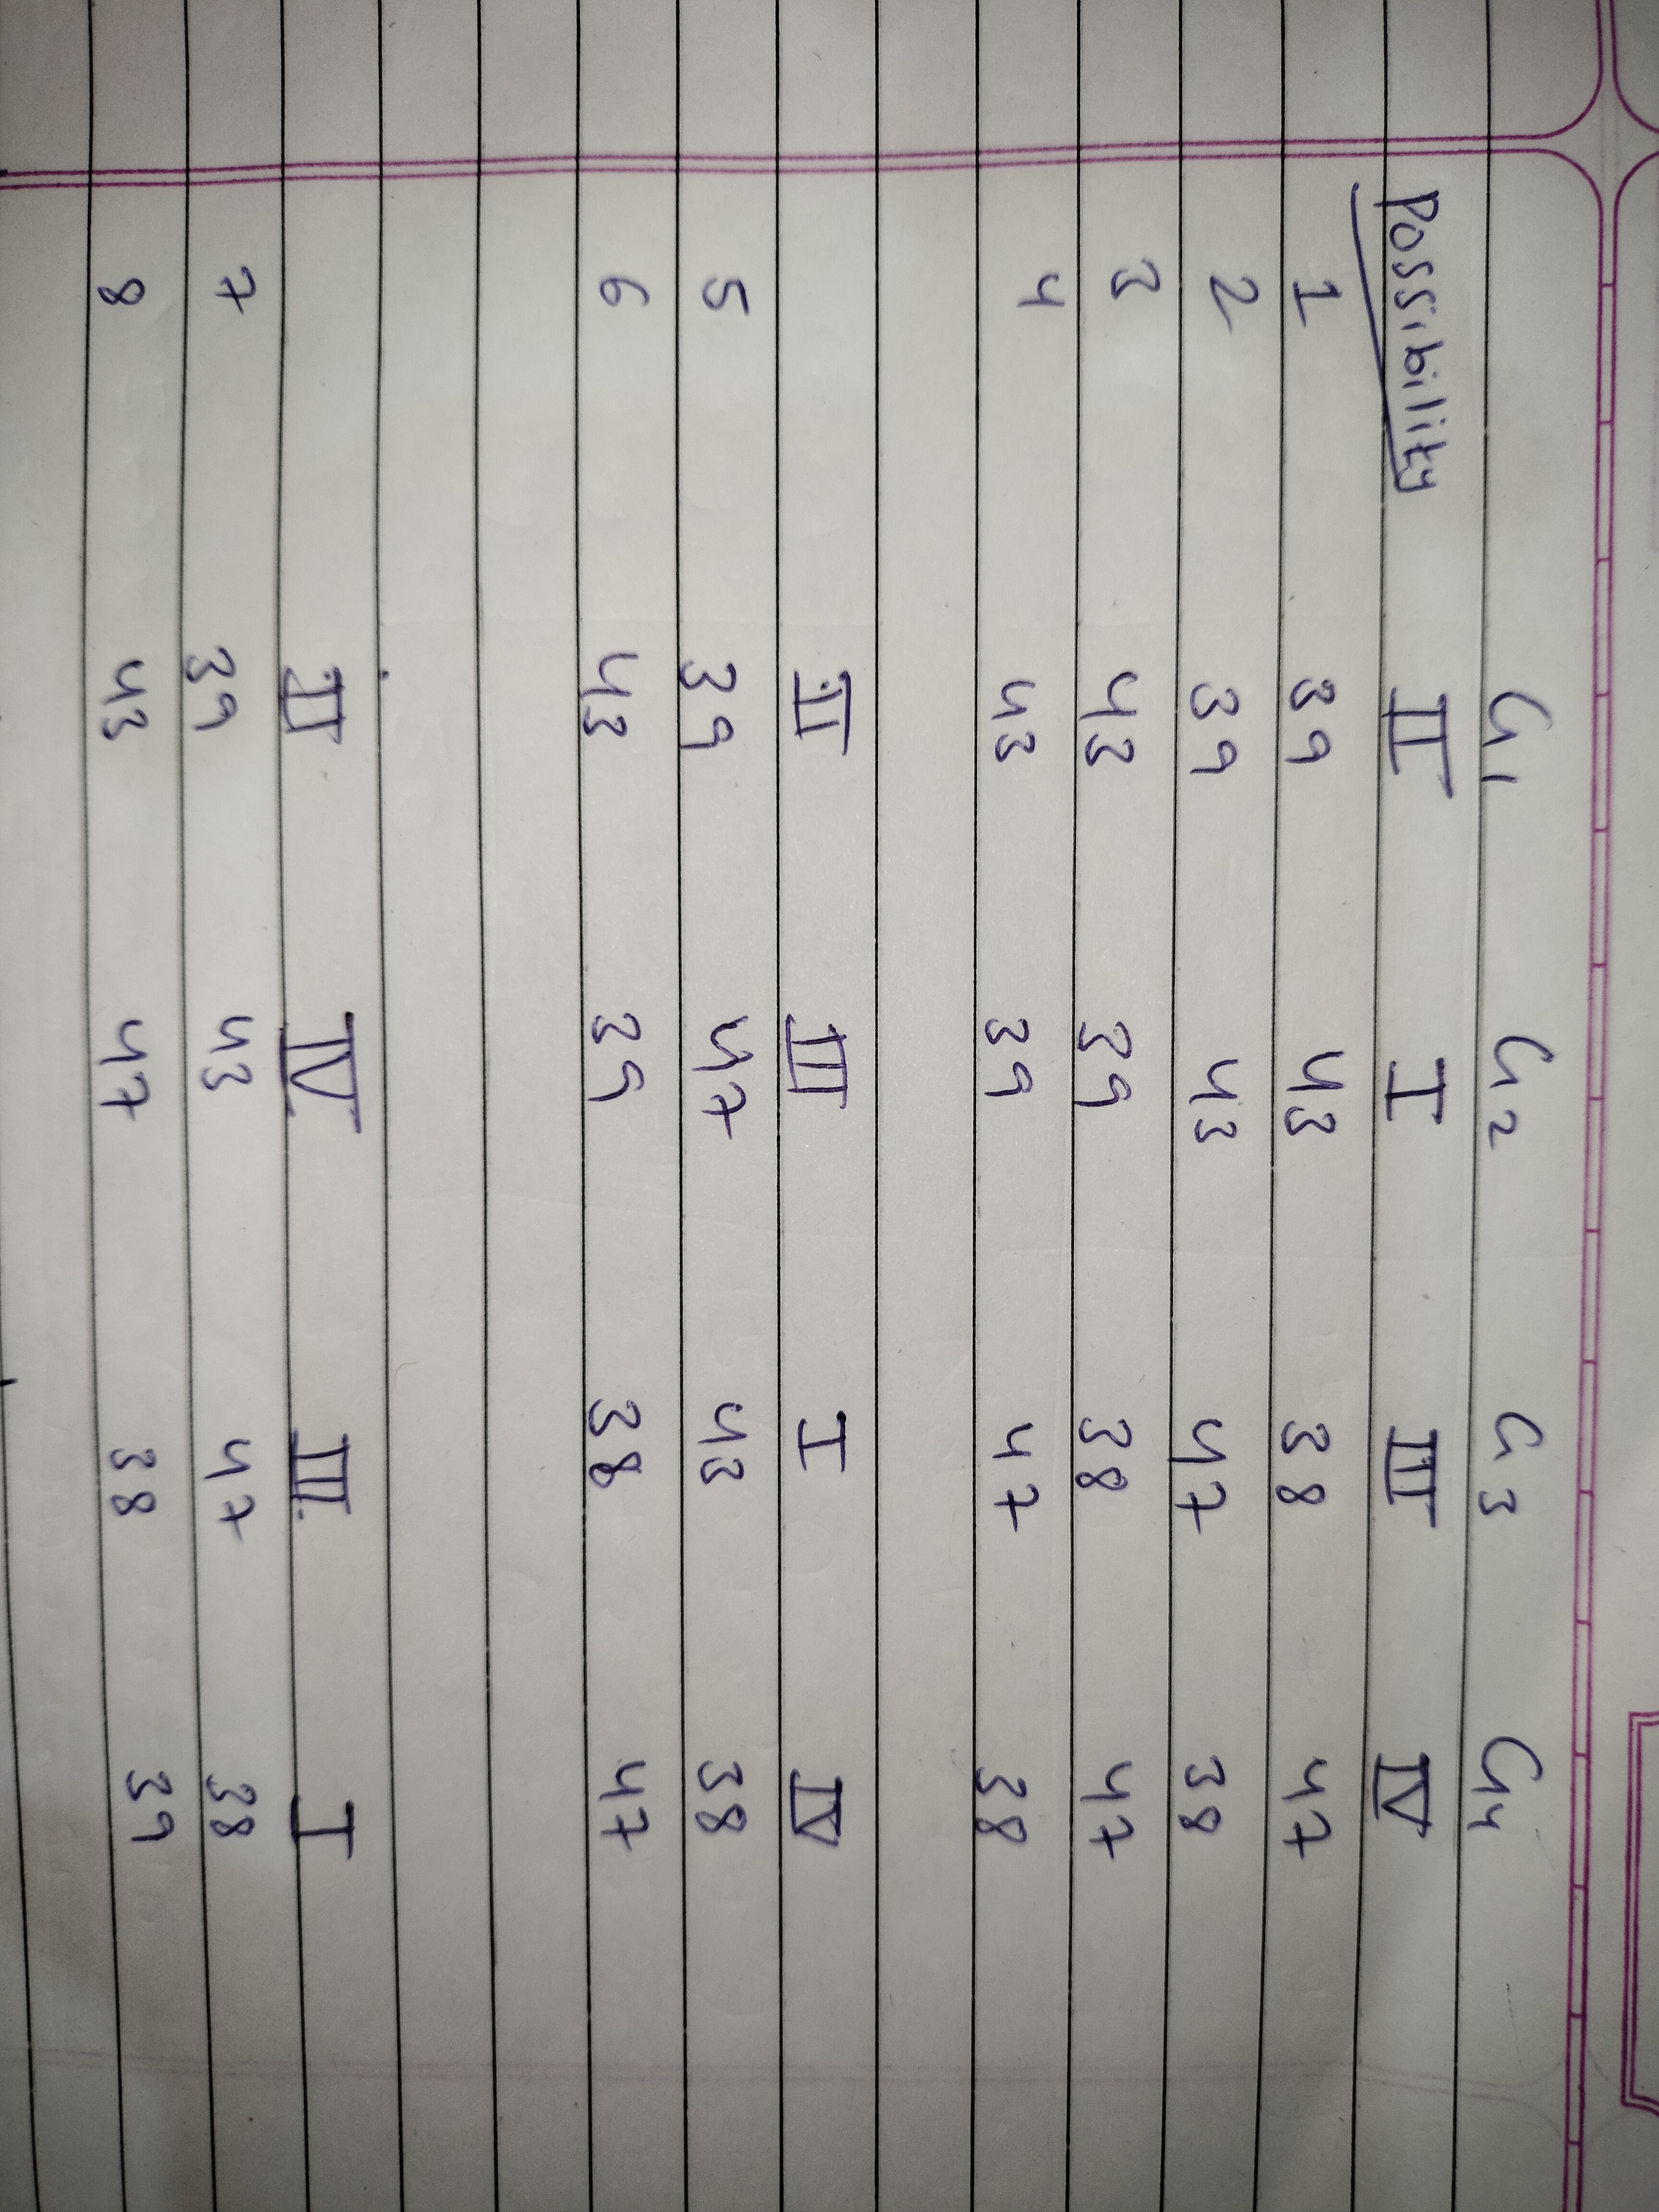 G1 G2 G3 G4
Possibility II I III IV
1 39 43 38 47
2 39 43 47 38
3 43 39 38 47
4 43 39 47 38
II III I IV
5 39 47 43 38
6 43 39 38 47
II IV III I
7 39 43 47 38
8 43 47 38 39